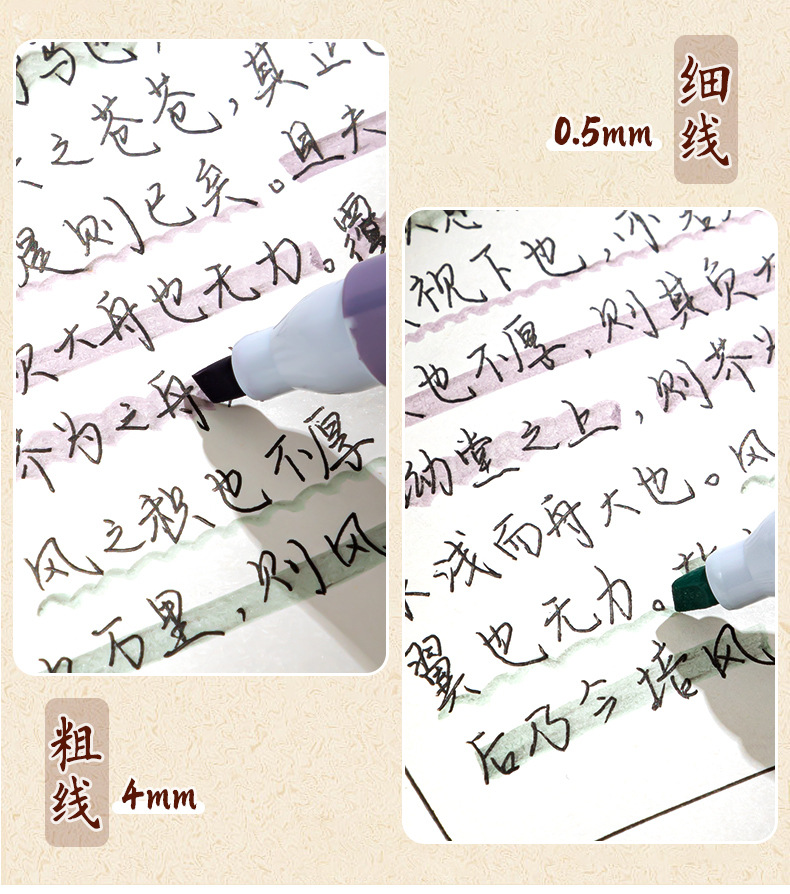 细线
0.5mm
之苍苍，其正
是则已矣。且夫
负大舟也无力。覆
芥为之舟
风之积也不厚
万里，则风
视下也，亦若
也不厚，则其负大
堂之上，则芥为
水浅而舟大也。风
翼也无力。故
后乃今培风
粗线
4mm